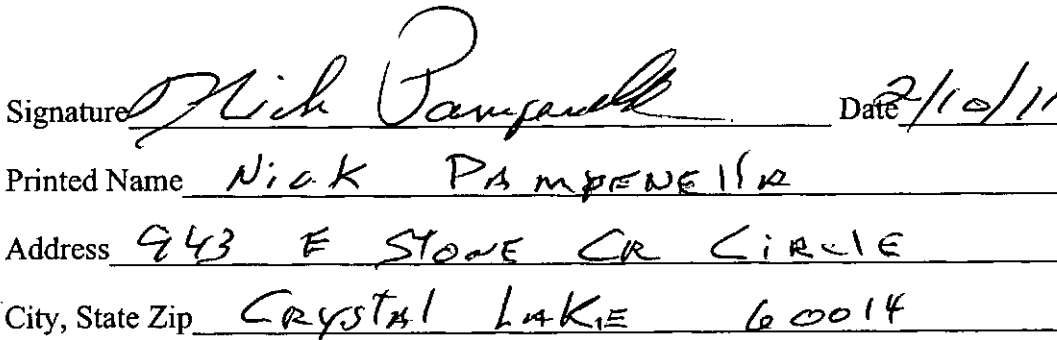 Signature Nick Pampenella Date 2/10/11
Printed Name Nick PAmpENEllA
Address 943 E STONE CR CiRclE
City, State Zip CRysTAl LAKE 60014